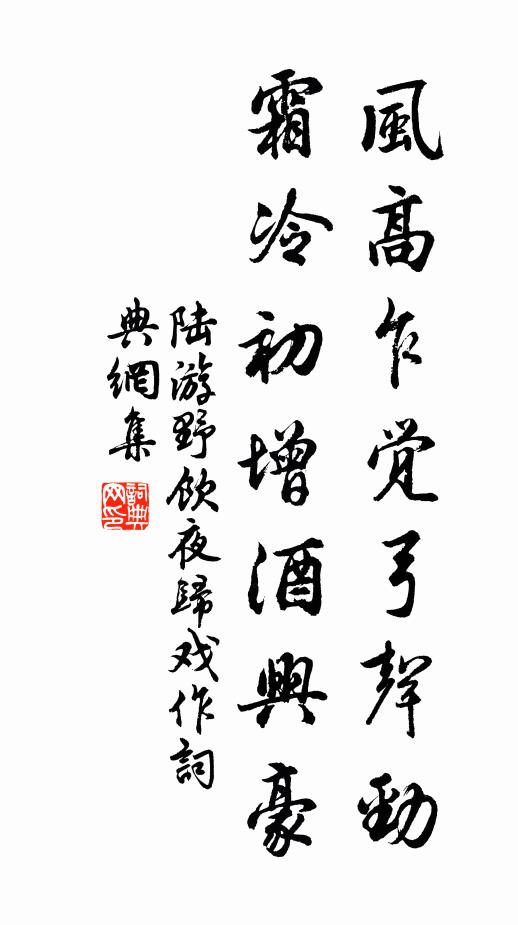 風高乍覺弓聲勁
霜冷初增酒興豪
陆游野飲夜歸戏作詞
典網集
詞典网印